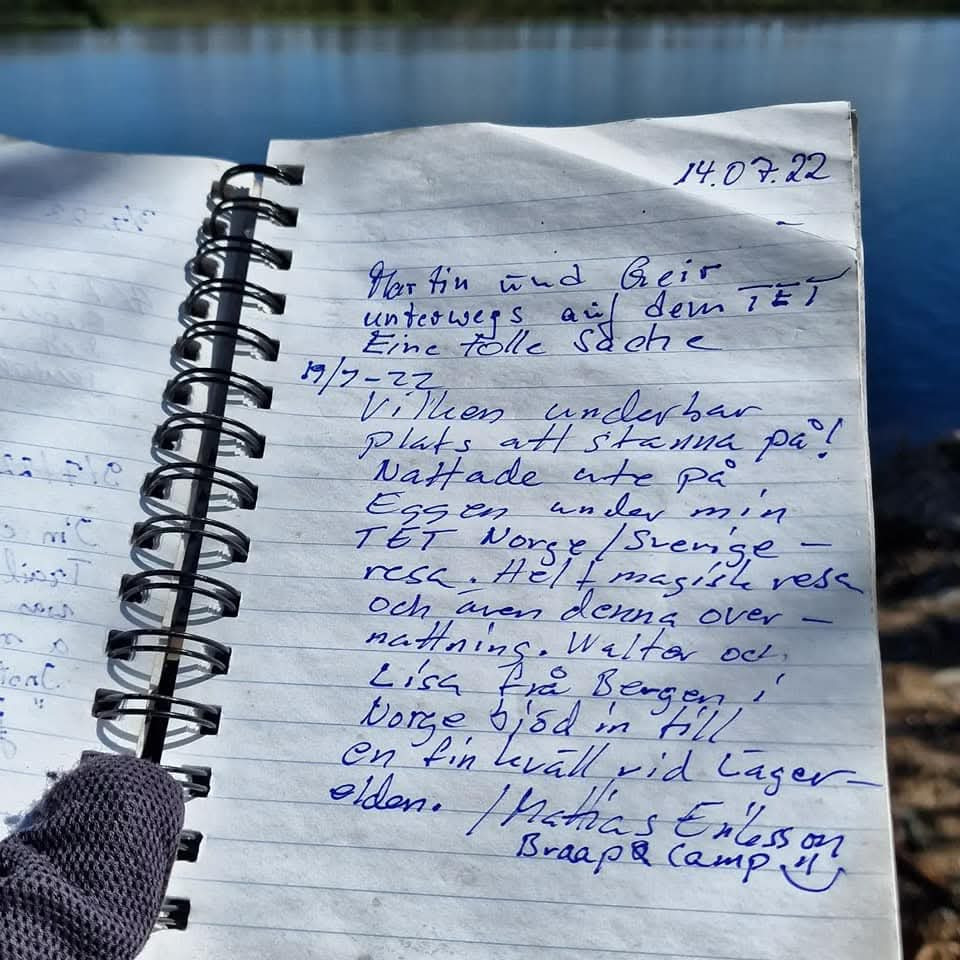 14.07.22
Martin und Geir
unterwegs auf dem TET
Eine tolle Sache
19/7-22
Vilken underbar
plats att stanna på!
Nattade ute på
Eggen under min
TET Norge/Sverige-
resa. Helt magisk resa
och även denna over-
nattning. Walter och
Lisa från Bergen i
Norge bjöd in till
en fin kväll vid Läger-
elden. /Mattias Eriksson
Braap & Camp